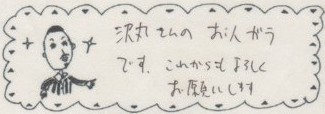 沢丸さんの お人がら
です。これからもよろしく
お願いします